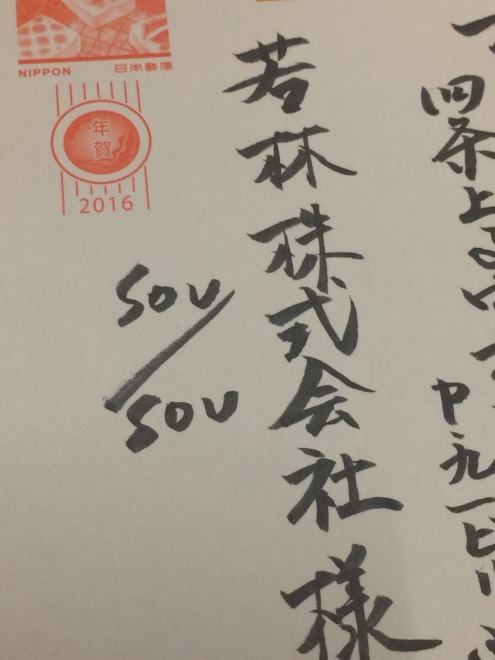 NIPPON 日本郵便
年賀
2016
四条上る
中之
若林株式会社様
SOU
/
SOU